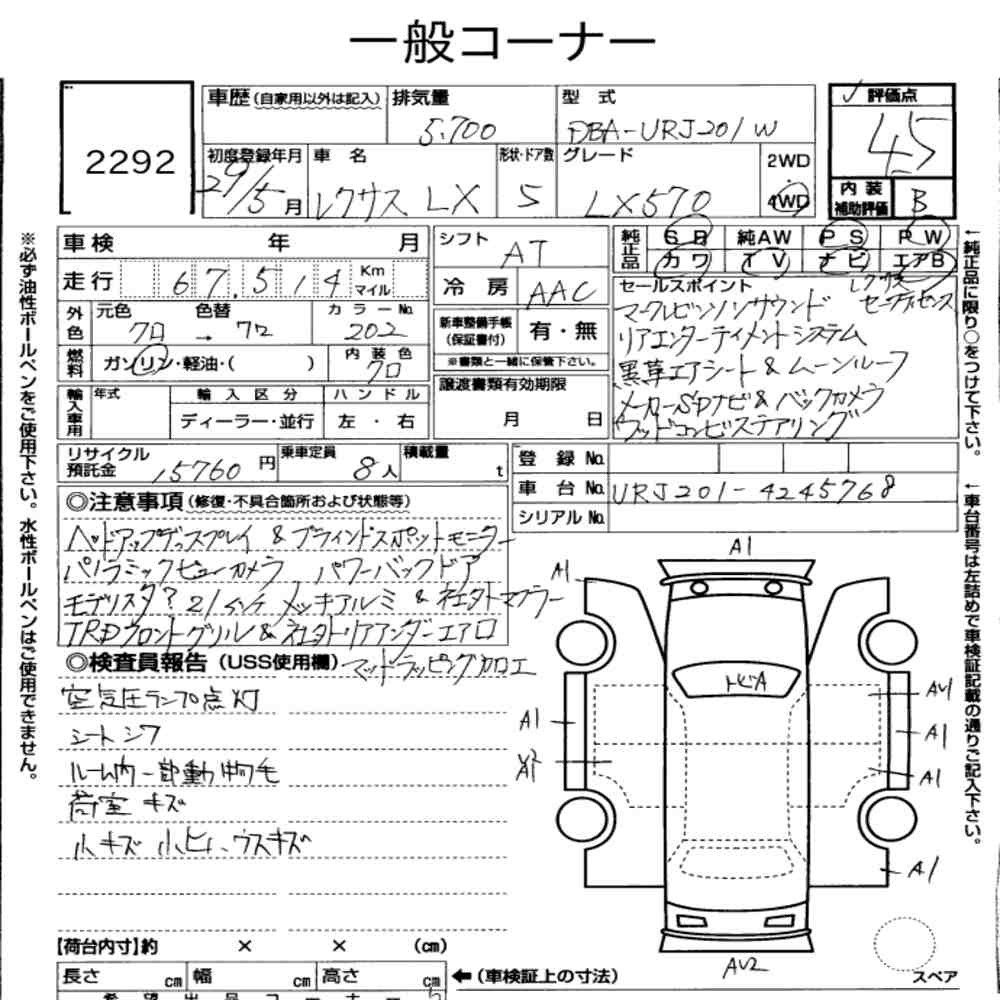 一般コーナー
2292
車歴(自家用以外は記入) 排気量 5.700
型式 DBA-URJ201W
評価点 4.5
初度登録年月 29/5月
車名 レクサス LX
形状・ドア数 5
グレード LX570
2WD・4WD
内装補助評価 B
車検 年 月
走行 67,514 Km マイル
外色 元色 クロ → 色替 クロ
カラーNo. 202
燃料 ガソリン・軽油・( )
内装色 クロ
輸入車用 年式 輸入区分 ハンドル
ディーラー・並行 左・右
シフト AT
冷房 AAC
新車整備手帳(保証書付) 有・無
※書類と一緒に保管下さい。
譲渡書類有効期限
月 日
純正品 SR 純AW PS PW
カワ TV ナビ エアB
セールスポイント レクサスセーフティセンス
マークレビンソンサウンド
リアエンターテイメントシステム
黒革エアシート & ムーンルーフ
メーカーSDナビ & バックカメラ
ウッドコンビステアリング
リサイクル預託金 15760円
乗車定員 8人
積載量 t
登録No.
車台No. URJ201-4245768
シリアルNo.
◎注意事項(修復・不具合箇所および状態等)
ヘッドアップディスプレイ & ブラインドスポットモニター
パノラミックビューカメラ パワーバックドア
モデリスタ? 21インチ メッキアルミ & 社外マフラー
TRDフロントグリル & 社外リアアンダーエアロ
マットラッピング加工
◎検査員報告(USS使用欄)
空気圧ランプ点灯
シートシワ
ルーム内一部動物毛
荷室キズ
小キズ 小ヒ、ウスキズ
A1
A1
トビA
A1
AU
A1
A1
A1
AU2
スペア
【荷台内寸】約 × × (cm)
長さ cm 幅 cm 高さ cm
←(車検証上の寸法)
※必ず油性ボールペンをご使用下さい。水性ボールペンはご使用できません。
←純正品に限り○をつけて下さい。
←車台番号は左詰めで車検証記載の通りご記入下さい。